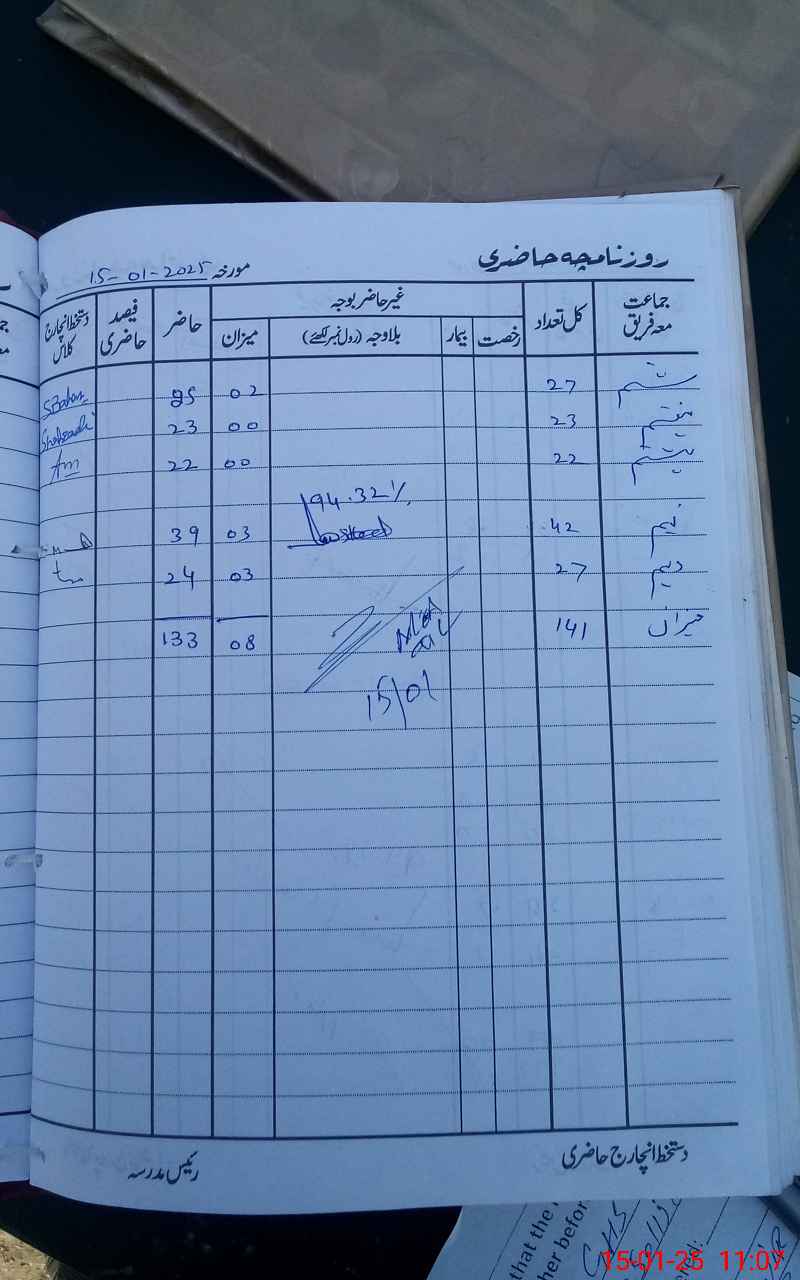 روزنامچہ حاضری
مورخہ 15-01-2025
جماعت معہ فریق کل تعداد غیر حاضر بوجہ حاضر فیصد حاضری دستخط انچارج کلاس
رخصت بیمار بلاوجہ (رول نمبر لکھئے) میزان
ششم 27 02 25
ہفتم 23 00 23
ہشتم 22 00 22
94.32%
نہم 42 03 39
دہم 27 03 24
میزان 141 08 133
15/01
دستخط انچارج حاضری
رئیس مدرسہ
that the
her befor
GHS
15-01-25 11:07